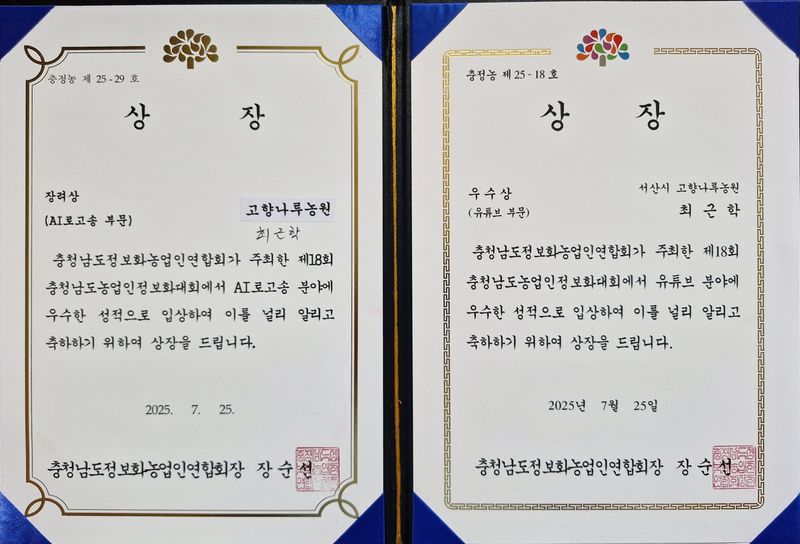 충정농 제 25-29 호
상 장
장려상
(AI로고송 부문)
고향나루농원
최근학
충청남도정보화농업인연합회가 주최한 제18회
충청남도농업인정보화대회에서 AI로고송 분야에
우수한 성적으로 입상하여 이를 널리 알리고
축하하기 위하여 상장을 드립니다.
2025. 7. 25.
충청남도정보화농업인연합회장 장순선
충정농 제 25-18 호
상 장
우수상
(유튜브 부문)
서산시 고향나루농원
최 근 학
충청남도정보화농업인연합회가 주최한 제18회
충청남도농업인정보화대회에서 유튜브 분야에
우수한 성적으로 입상하여 이를 널리 알리고
축하하기 위하여 상장을 드립니다.
2025년 7월 25일
충청남도정보화농업인연합회장 장순선